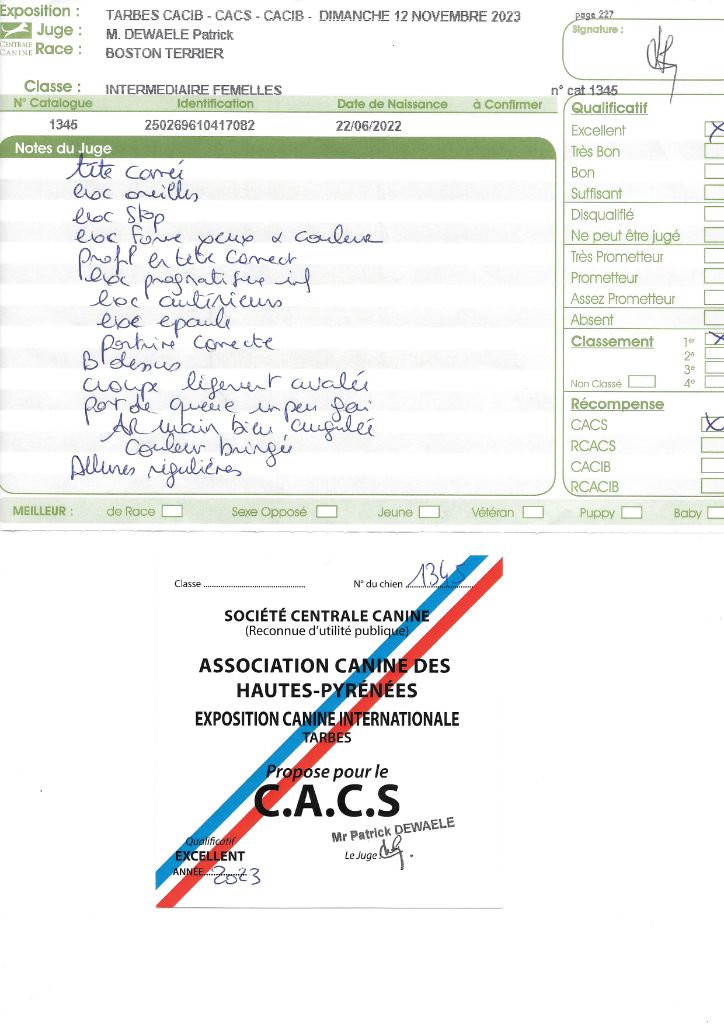 Exposition : TARBES CACIB - CACS - CACIB - DIMANCHE 12 NOVEMBRE 2023 page 227
CENTRALE CANINE
Juge : M. DEWAELE Patrick Signature :
Race : BOSTON TERRIER
Classe : INTERMEDIAIRE FEMELLES n° cat 1345
N° Catalogue Identification Date de Naissance à Confirmer
1345 250269610417082 22/06/2022
Notes du Juge
tête carré
exc oreilles
exc Stop
exc forme yeux & couleur
Profil en tête correct
exc prognatisme inf
exc antérieurs
exc epaule
Poitrine correcte
B dessus
croupe légèrement avalée
port de queue un peu gai
AR main bien angulée
Couleur bringée
Allures régulières
Qualificatif
Excellent X
Très Bon
Bon
Suffisant
Disqualifié
Ne peut être jugé
Très Prometteur
Prometteur
Assez Prometteur
Absent
Classement 1er X
2e
3e
Non Classé 4e
Récompense
CACS X
RCACS
CACIB
RCACIB
MEILLEUR : de Race Sexe Opposé Jeune Vétéran Puppy Baby
Classe .......... N° du chien 1345
SOCIÉTÉ CENTRALE CANINE
(Reconnue d'utilité publique)
ASSOCIATION CANINE DES
HAUTES-PYRÉNÉES
EXPOSITION CANINE INTERNATIONALE
TARBES
Propose pour le
C.A.C.S
Mr Patrick DEWAELE
Qualificatif
EXCELLENT Le Juge
ANNÉE 2023